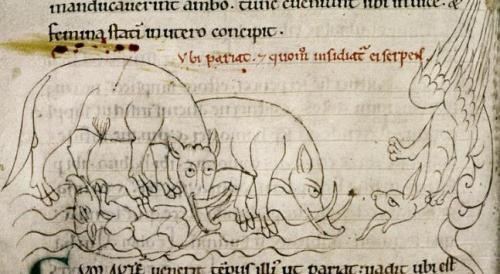 manducauerint ambo. tunc sibi inuicē. &
femina statī in utero concipit.
Vbi pariat. ⁊ quom̄ insidiat̄ ei serpens.
uenerit tēpus illiꝰ ut pariat: uadit ubi est